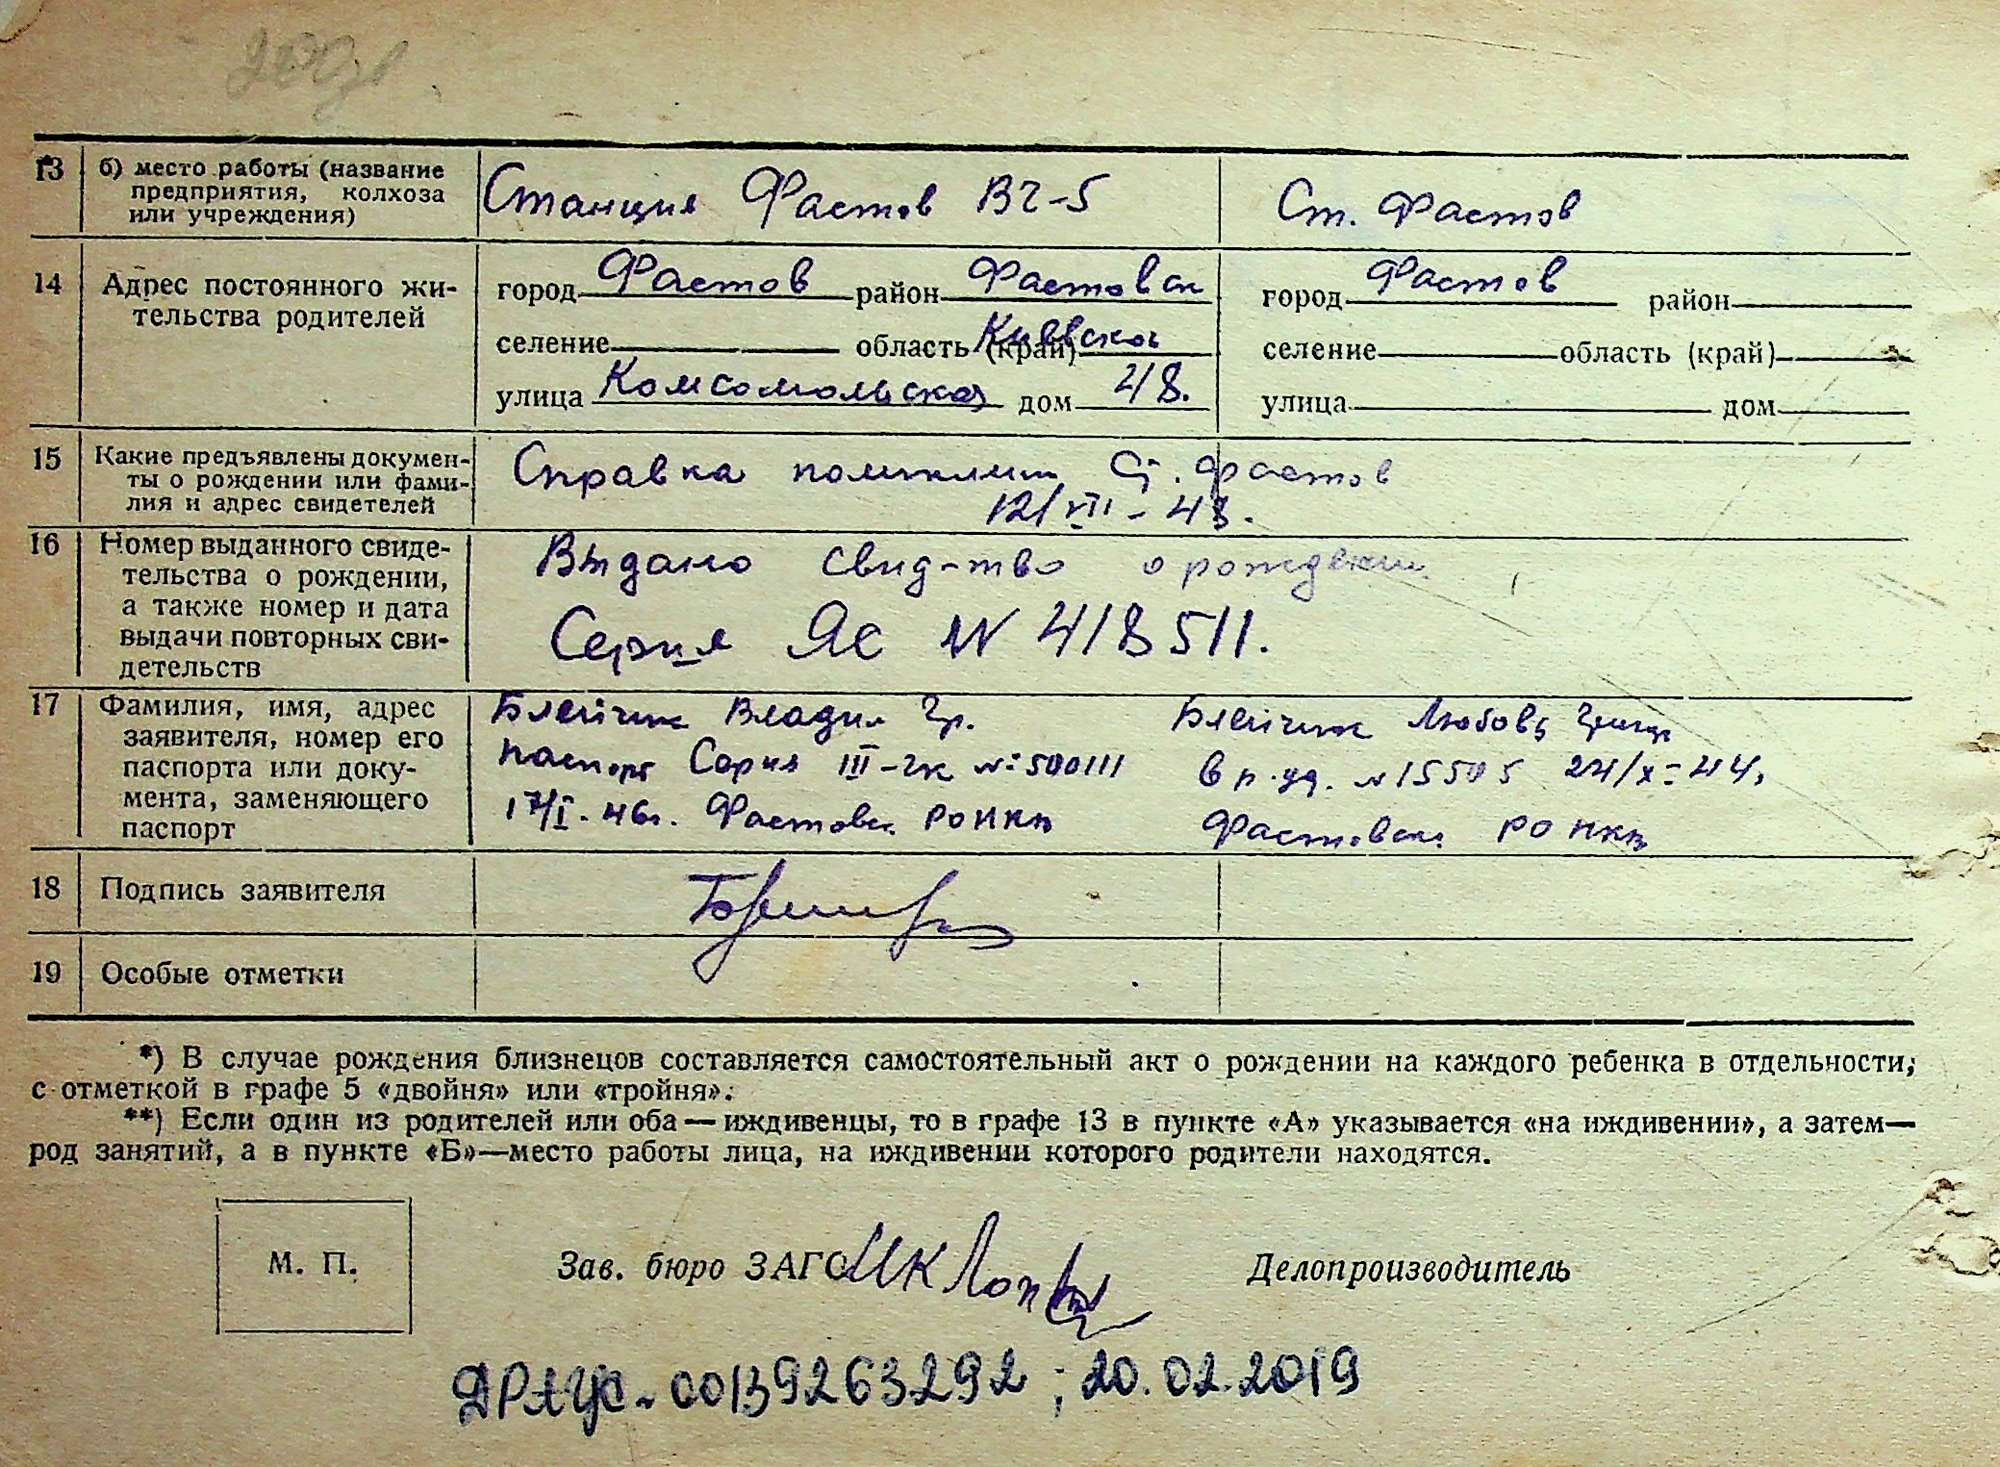 13 б) место работы (название
предприятия, колхоза
или учреждения)
Станция Фастов ВЧ-5 Ст. Фастов
14 Адрес постоянного жи-
тельства родителей
город Фастов район Фастовск
селение область (край) Киевской
улица Комсомольская дом 48.
город Фастов район
селение область (край)
улица дом
15 Какие предъявлены докумен-
ты о рождении или фами-
лия и адрес свидетелей
Справка Ст. Фастов
12/VII - 48.
16 Номер выданного свиде-
тельства о рождении,
а также номер и дата
выдачи повторных сви-
детельств
Выдано свид-тво о рождении
Серия ЯС N 418511.
17 Фамилия, имя, адрес
заявителя, номер его
паспорта или доку-
мента, заменяющего
паспорт
Блейчик Владил Гр.
паспорт Серия III-чк № 500111
17/I-46г. Фастовск РОНКВ
Блейчик Любовь
в п. уд. N 15505 24/X-44,
Фастовск. РОНКВ
18 Подпись заявителя
19 Особые отметки
*) В случае рождения близнецов составляется самостоятельный акт о рождении на каждого ребенка в отдельности,
с отметкой в графе 5 «двойня» или «тройня».
**) Если один из родителей или оба — иждивенцы, то в графе 13 в пункте «А» указывается «на иждивении», а затем—
род занятий, а в пункте «Б»—место работы лица, на иждивении которого родители находятся.
М. П.
Зав. бюро ЗАГС
Делопроизводитель
ДРАЦС - 00139263292; 20.02.2019